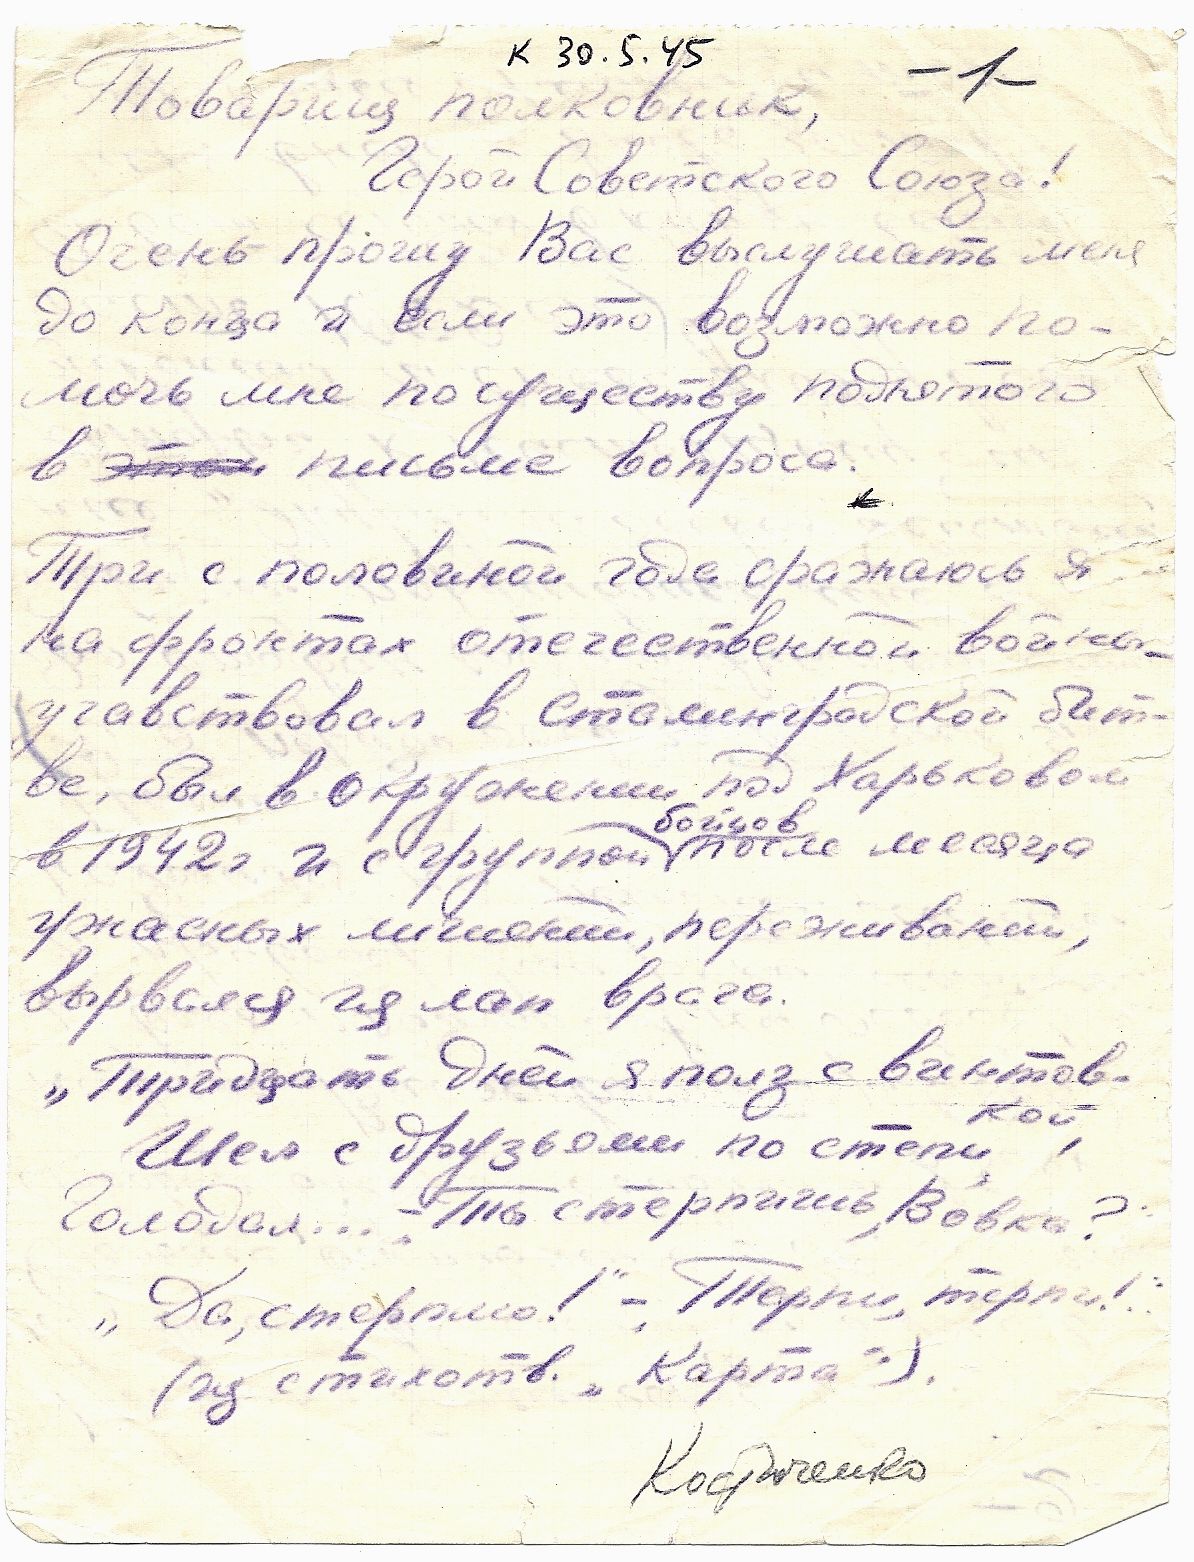 к 30.5.45
-1-
Товарищ полковник,
Герой Советского Союза!
Очень прошу Вас выслушать меня
до конца и если это возможно по-
мочь мне по существу поднятого
в этом письме вопроса.
Три с половиной года сражаюсь я
на фронтах отечественной войны -
учавствовал в Сталинградской бит-
ве, был в окружении под Харьковом
бойцов
в 1942г и с группой после месяца
ужасных лишений, переживаний,
вырвался из лап врага.
„Тридцать дней я полз с винтов-
кой,
Шел с друзьями по степи,
Голодал... - Ты стерпишь, Вовка?
„Да, стерплю!" - Терпи, терпи!"
(из стихотв. „Карта").